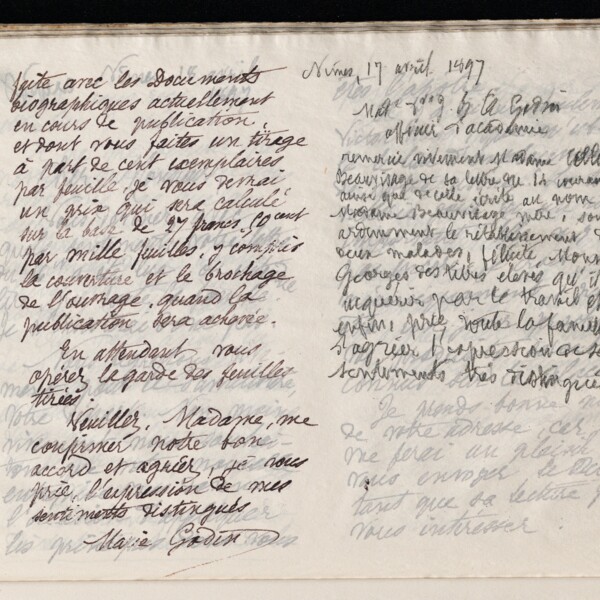 faite avec les Documents
biographiques actuellement
en cours de publication,
et dont vous faites un tirage
à part de cent exemplaires
par feuille, je vous devrai,
un prix qui sera calculé
sur la base de 27 francs, 50 cent
par mille feuilles, y compris
la couverture et le brochage
de l'ouvrage, quand la
publication sera achevée.
En attendant vous
opérez la garde des feuilles
tirées.
Veuillez, Madame, me
confirmer notre bon
accord et agréer, je vous
prie, l'expression de mes
sentiments distingués
Marie Godin
Nîmes, 17 avril 1897
Godin
officier d'académie
remercie vivement Madame
Beauvisage de sa lettre du 14 courant
ainsi que de celle écrite au nom
Madame Beauvisage mère,
ardemment le rétablissement
deux malades, félicite
Georges des titres élevés qu'il
acquérir par le travail et
enfin, prie toute la famille
d'agréer l'expression de ses
sentiments très distingués
Je prends bonne
de votre adresse car
me ferai un plaisir
vous envoyer le
tant que sa lecture
vous intéresser.